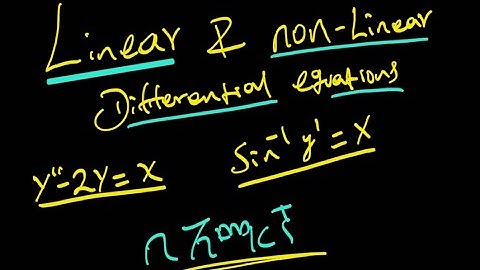 Linear & non-Linear
Differential equations
y"-2y=x
Sin⁻¹ y'=x